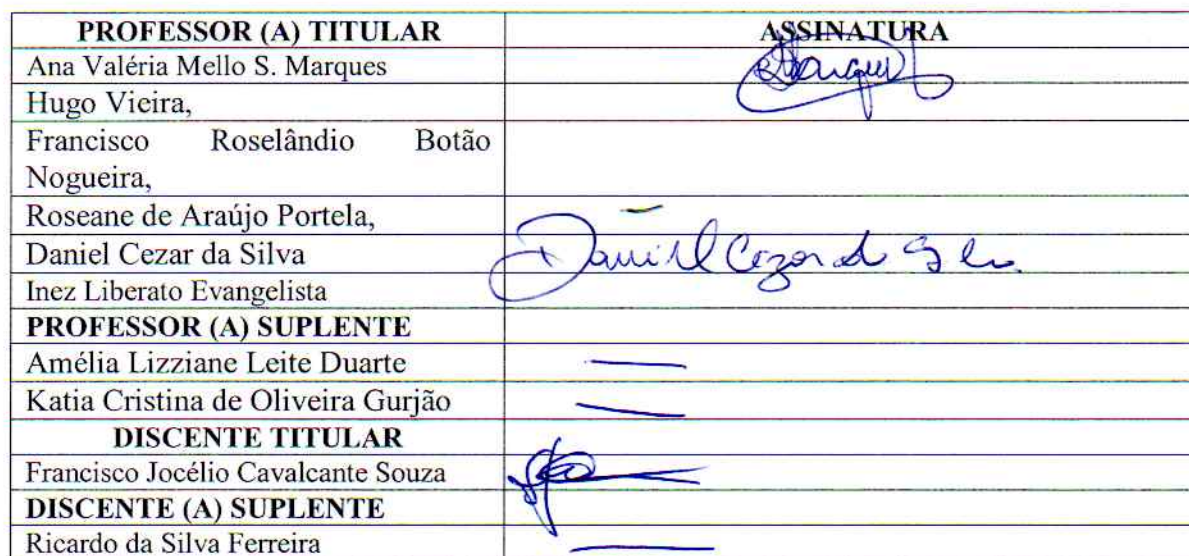 PROFESSOR (A) TITULAR ASSINATURA
Ana Valéria Mello S. Marques Marques
Hugo Vieira,
Francisco Roselândio Botão
Nogueira,
Roseane de Araújo Portela,
Daniel Cezar da Silva Daniel Cezar da Silva
Inez Liberato Evangelista
PROFESSOR (A) SUPLENTE
Amélia Lizziane Leite Duarte
Katia Cristina de Oliveira Gurjão
DISCENTE TITULAR
Francisco Jocélio Cavalcante Souza
DISCENTE (A) SUPLENTE
Ricardo da Silva Ferreira